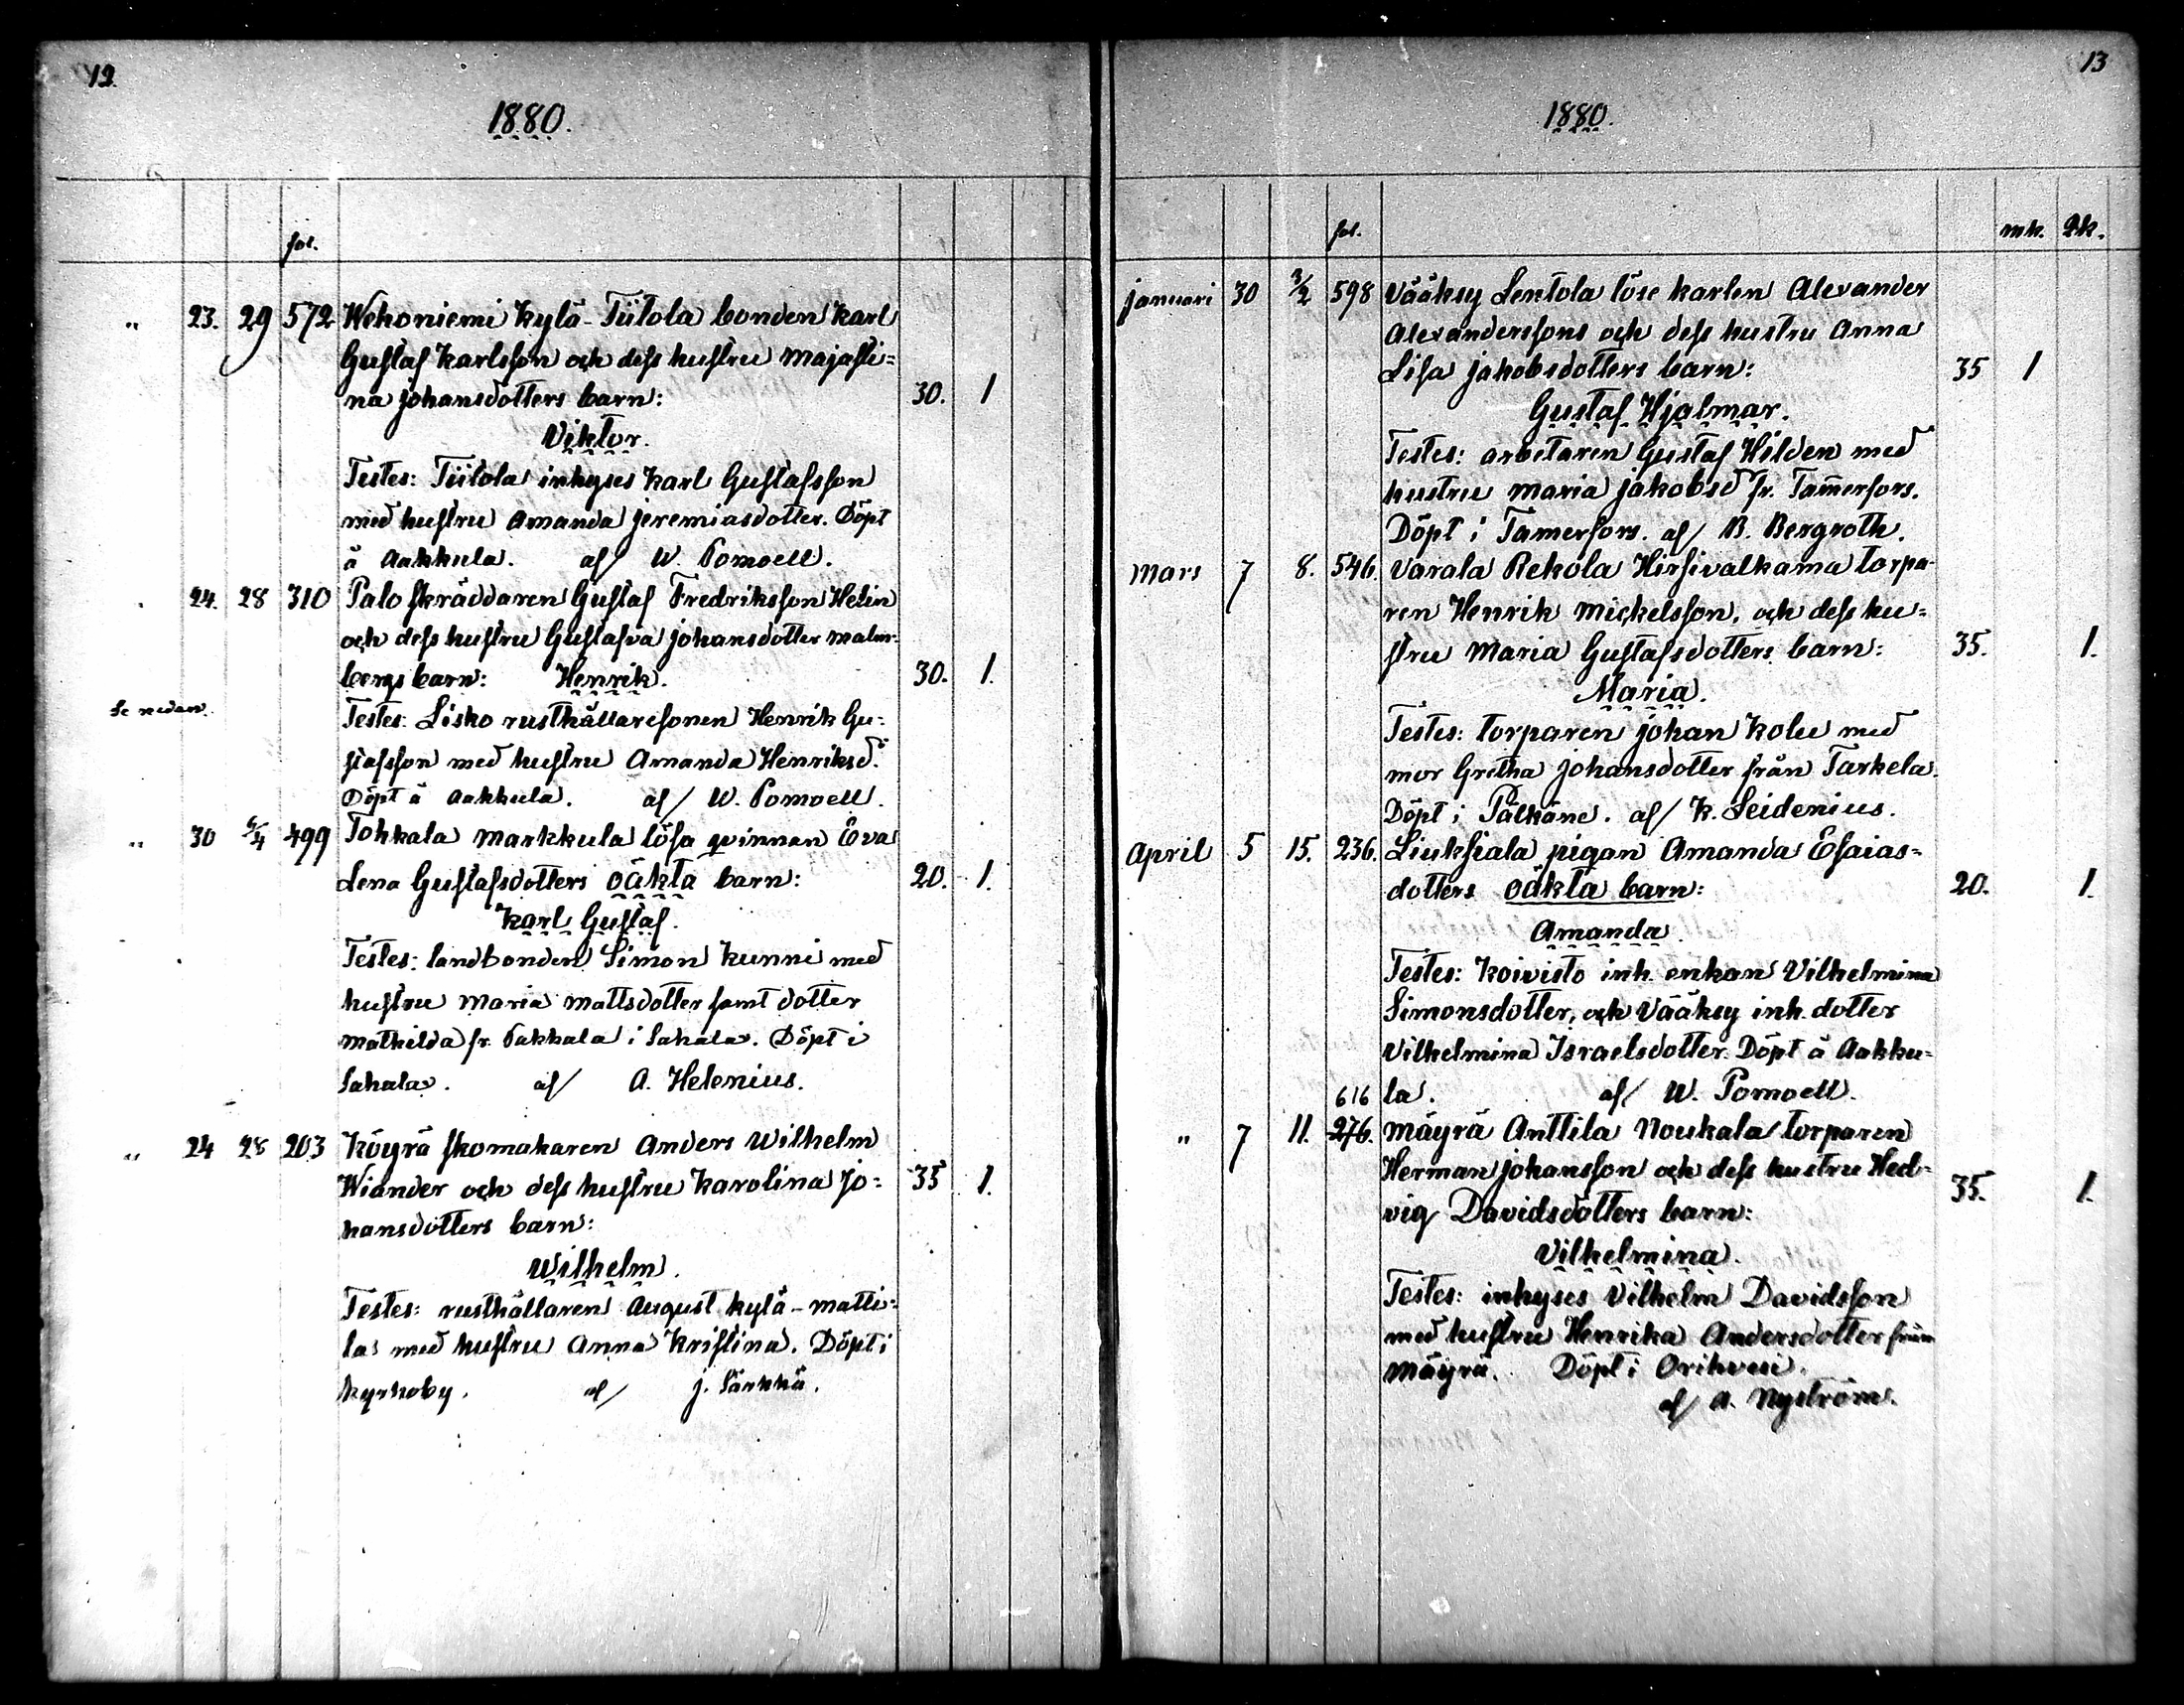 12.
1880.
fol.
" 23. 29 572 Wehoniemi Kylä-Tiitola bonden Karl
Gustaf Karlsson och dess hustru Majasti=
na Johansdotters barn: 30. 1
Viktor.
Testes: Tiitola inhyses Karl Gustafsson
med hustru Amanda Jeremiasdotter. Döpt
å Aakkula. af/ W. Pomoell.
24. 28 310 Palo skräddaren Gustaf Fredriksson Helin
och dess hustru Gustafva Johansdotter Malm-
bergs barn: Henrik. 30. 1.
Se nedan.
Testes: Lisko rusthållaresonen Henrik Gu-
stafsson med hustru Amanda Henriksd:
Döpt å Aakkula. af/ W. Pomoell.
" 30 5/4 499 Tohkala Markkula lösa qvinnan Eva
Lena Gustafsdotters oäkta barn: 20. 1.
Karl Gustaf.
Testes: landbonden Simon Kunni med
hustru Maria Mattsdotter samt dotter
Mathilda fr. Pakkala i Sahala. Döpt i
Sahala. af/ A. Helenius.
" 24 28 203 Köyrä skomakaren Anders Wilhelm
Wiander och dess hustru Karolina Jo= 35 1.
hansdotters barn:
Wilhelm.
Testes: rusthållaren August Kylä-Matti=
la med hustru Anna Kristina. Döpt i
Kyrkoby. af/ J. Särkkä.
13
1880.
fol. mk. Rk.
Januari 30 3/2 598 Vääksy Lentola löse karlen Alexander
Alexanderssons och dess hustru Anna
Lisa Jakobsdotters barn: 35 1
Gustaf Hjalmar.
Testes: arbetaren Gustaf Hilden med
hustru Maria Jakobsd fr. Tam̄erfors.
Döpt i Tamerfors. af/ B. Bergroth.
Mars 7 8. 546. Varala Rekola Hirsivalkama torpa-
ren Henrik Mickelsson, och dess hu=
stru Maria Gustafsdotters barn: 35. 1.
Maria.
Testes: torparen Johan Kolu med
mor Gretha Johansdotter från Tarkela.
Döpt i Pälkäne. af/ K. Leidenius.
April 5 15. 236. Liuksiala pigan Amanda Esaias=
dotters oäkta barn: 20. 1.
Amanda.
Testes: Koivisto inh. enkan Vilhelmina
Simonsdotter, och Vääksy inh. dotter
Vilhelmina Israelsdotter. Döpt å Aakku=
616 la. af/ W. Pomoell.
" 7 11. 276. Mäyrä Anttila Noukala torparen
Herman Johansson och dess hustru Hed-
vig Davidsdotters barn: 35. 1.
Vilhelmina.
Testes: inhyses Vilhelm Davidsson
med hustru Henrika Andersdotter från
Mäyrä. Döpt i Orihvesi.
af/ A. Nyström.